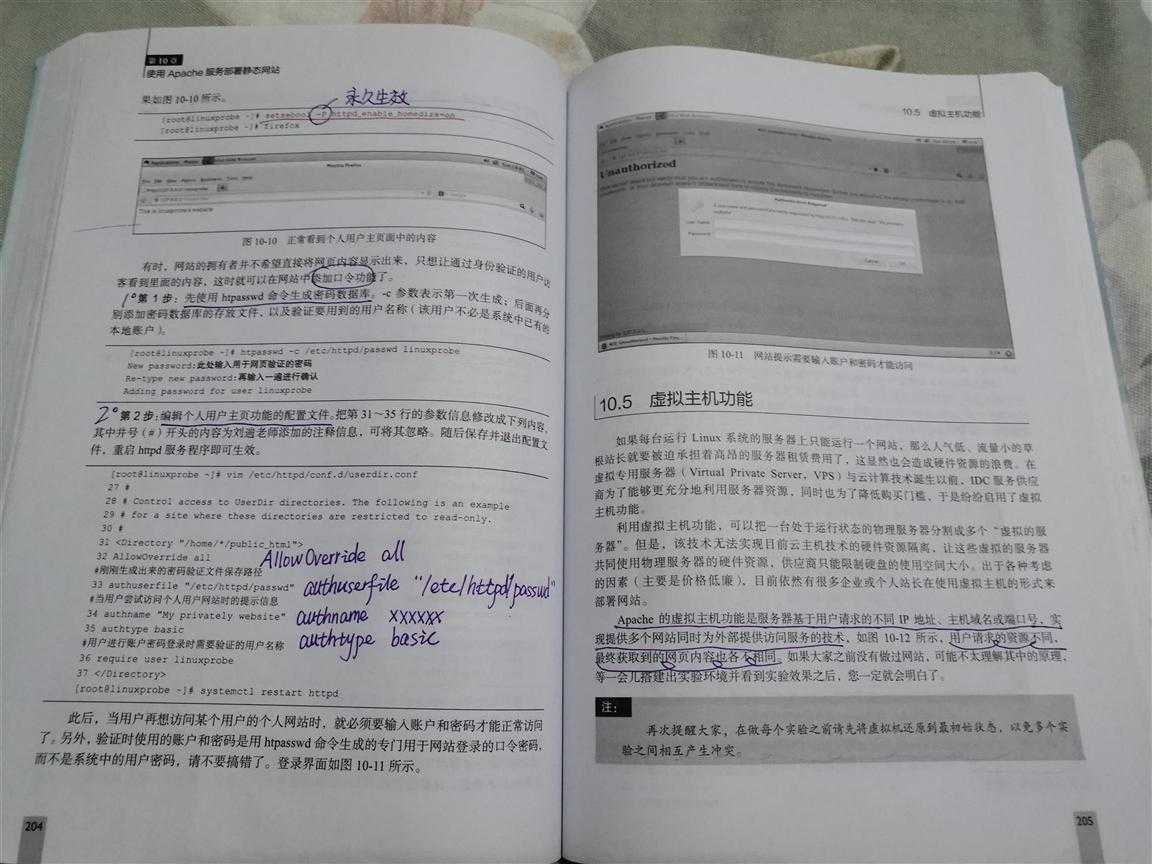 第10章
使用 Apache 服务部署静态网站
果如图 10-10 所示。
永久生效
[root@linuxprobe ~]# setsebool -P httpd_enable_homedirs=on
[root@linuxprobe ~]# firefox
Mozilla Firefox
This is linuxprobe's website
图 10-10 正常看到个人用户主页面中的内容
有时，网站的拥有者并不希望直接将网页内容显示出来，只想让通过身份验证的用户访
客看到里面的内容，这时就可以在网站中添加口令功能了。
1° 第 1 步：先使用 htpasswd 命令生成密码数据库。-c 参数表示第一次生成；后面再分
别添加密码数据库的存放文件，以及验证要用到的用户名称（该用户不必是系统中已有的
本地账户）。
[root@linuxprobe ~]# htpasswd -c /etc/httpd/passwd linuxprobe
New password:此处输入用于网页验证的密码
Re-type new password:再输入一遍进行确认
Adding password for user linuxprobe
2° 第 2 步：编辑个人用户主页功能的配置文件。把第 31～35 行的参数信息修改成下列内容，
其中井号（#）开头的内容为刘遄老师添加的注释信息，可将其忽略。随后保存并退出配置文
件，重启 httpd 服务程序即可生效。
[root@linuxprobe ~]# vim /etc/httpd/conf.d/userdir.conf
27 #
28 # Control access to UserDir directories. The following is an example
29 # for a site where these directories are restricted to read-only.
30 #
31 <Directory "/home/*/public_html">
32 AllowOverride all
AllowOverride all
#刚刚生成出来的密码验证文件保存路径
33 authuserfile "/etc/httpd/passwd"
authuserfile "/etc/httpd/passwd"
#当用户尝试访问个人用户网站时的提示信息
34 authname "My privately website"
authname xxxxxx
35 authtype basic
authtype basic
#用户进行账户密码登录时需要验证的用户名称
36 require user linuxprobe
37 </Directory>
[root@linuxprobe ~]# systemctl restart httpd
此后，当用户再想访问某个用户的个人网站时，就必须要输入账户和密码才能正常访问
了。另外，验证时使用的账户和密码是用 htpasswd 命令生成的专门用于网站登录的口令密码，
而不是系统中的用户密码，请不要搞错了。登录界面如图 10-11 所示。
204
10.5 虚拟主机功能
Unauthorized
Authentication Required
User Name:
Password:
Cancel
OK
图 10-11 网站提示需要输入账户和密码才能访问
10.5 虚拟主机功能
如果每台运行 Linux 系统的服务器上只能运行一个网站，那么人气低、流量小的草
根站长就要被迫承担着高昂的服务器租赁费用了，这显然也会造成硬件资源的浪费。在
虚拟专用服务器（Virtual Private Server，VPS）与云计算技术诞生以前，IDC 服务供应
商为了能够更充分地利用服务器资源，同时也为了降低购买门槛，于是纷纷启用了虚拟
主机功能。
利用虚拟主机功能，可以把一台处于运行状态的物理服务器分割成多个“虚拟的服
务器”。但是，该技术无法实现目前云主机技术的硬件资源隔离，让这些虚拟的服务器
共同使用物理服务器的硬件资源，供应商只能限制硬盘的使用空间大小。出于各种考虑
的因素（主要是价格低廉），目前依然有很多企业或个人站长在使用虚拟主机的形式来
部署网站。
Apache 的虚拟主机功能是服务器基于用户请求的不同 IP 地址、主机域名或端口号，实
现提供多个网站同时为外部提供访问服务的技术，如图 10-12 所示，用户请求的资源不同，
最终获取到的网页内容也各不相同。如果大家之前没有做过网站，可能不太理解其中的原理，
等一会儿搭建出实验环境并看到实验效果之后，您一定就会明白了。
注：
再次提醒大家，在做每个实验之前请先将虚拟机还原到最初始状态，以免多个实
验之间相互产生冲突。
205